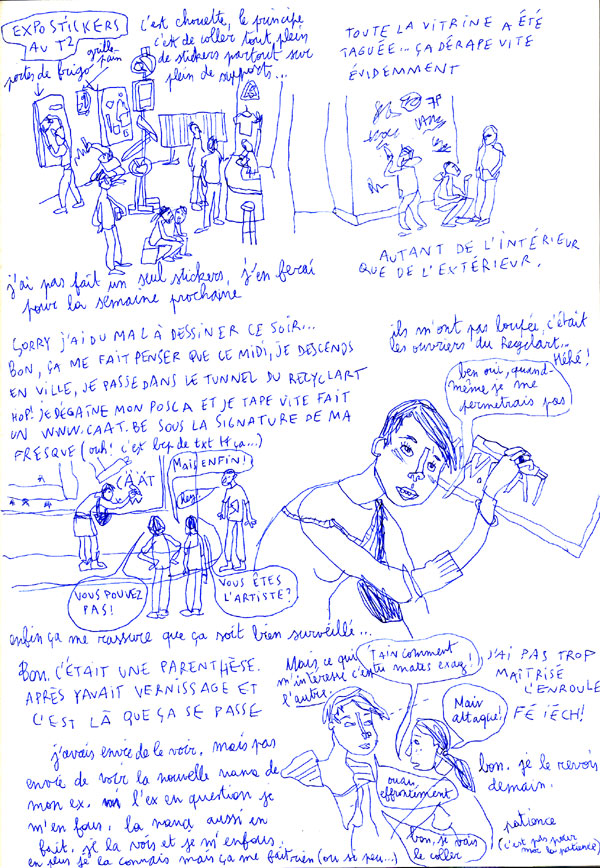 EXPO STICKERS
AU T²
c'est chouette, le principe
c'est de coller tout plein
de stickers partout sur
plein de supports...
portes de frigo
grille
pain
TOUTE LA VITRINE A ÉTÉ
TAGUÉE... ÇA DÉRAPE VITE
ÉVIDEMMENT
AUTANT DE L'INTÉRIEUR
QUE DE L'EXTÉRIEUR.
j'ai pas fait un seul stickers, j'en ferai
pour la semaine prochaine
SORRY J'AI DU MAL À DESSINER CE SOIR...
BON, ÇA ME FAIT PENSER QUE CE MIDI, JE DESCENDS
EN VILLE, JE PASSE DANS LE TUNNEL DU RECYCLART
HOP! JE DÉGAINE MON POSCA ET JE TAPE VITE FAIT
UN WWW.CAAT.BE SOUS LA SIGNATURE DE MA
FRESQUE (ouh! c'est bcp de txt tt ça...)
ils m'ont pas loupée, c'était
les ouvriers du Recyclart...
Héhé!
ben oui, quand-
même je me
permetrais pas
CAAT
MAIS ENFIN!
hey!
VOUS POUVEZ
PAS!
VOUS ÊTES
L'ARTISTE?
W.
enfin ça me rassure que ça soit bien surveillé...
BON. C'ÉTAIT UNE PARENTHÈSE.
APRÈS YAVAIT VERNISSAGE ET
C'EST LÀ QUE ÇA SE PASSE
j'avais envie de le voir, mais pas
envie de voir la nouvelle nana de
mon ex. l'ex en question je
m'en fous. la nana aussi en
fait. je la vois et je m'en fous.
en plus je la connais mais ça me fait rien (ou si peu...)
Mais ce qui
m'intéresse c'est
l'autre.
T'ain comment
tu mates exag!
Mais
attaque!
ouai,
effrontément
bon, je vais
le coller
J'AI PAS TROP
MAÎTRISÉ
L'ENROULE
FÉ IÈCH!
bon. je le revois
demain.
patience
(c'est pas pour
moi la patience)